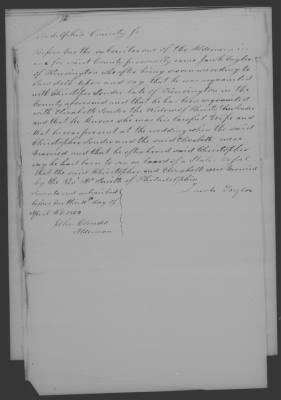 Philadelphia County Ss
Before me the subscriber one of the Aldermen in
and for said County personally came Jacob Taylor
of Kensington who after being sworn according to
law doth depose and say that he was acquainted
with Christopher late of Kensington in the
County aforesaid and that he has been acquainted
with Elizabeth the Widow of
and that he knows she was his lawful Wife and
that he was present at the wedding when the said
Christopher and the said Elizabeth were
married and that he often heard said Christopher
say he had been to sea on board of a State
that the said Christopher and Elizabeth were married
by the Revd Mr Smith of Philadelphia
Sworn and subscribed
before me the day of
April
John
Alderman
Jacob Taylor